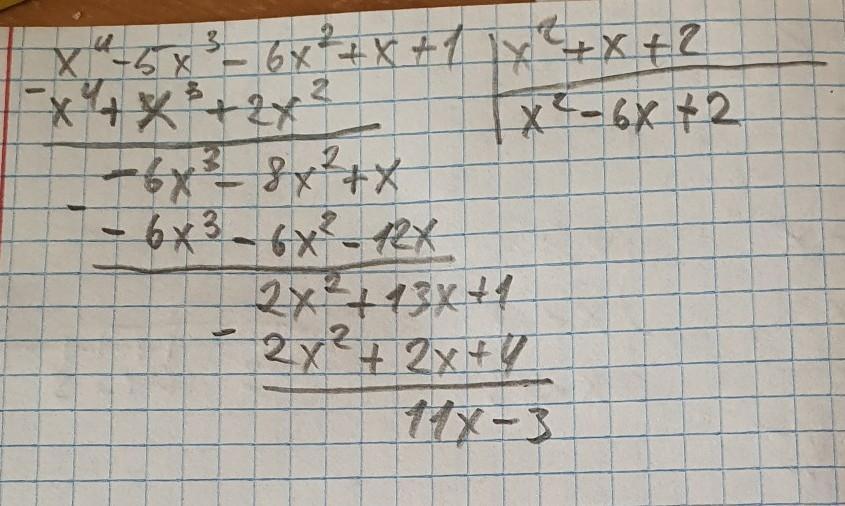 x⁴ - 5x³ - 6x² + x + 1 | x² + x + 2
- x⁴ + x³ + 2x² | x² - 6x + 2
- 6x³ - 8x² + x
- - 6x³ - 6x² - 12x
2x² + 13x + 1
- 2x² + 2x + 4
11x - 3